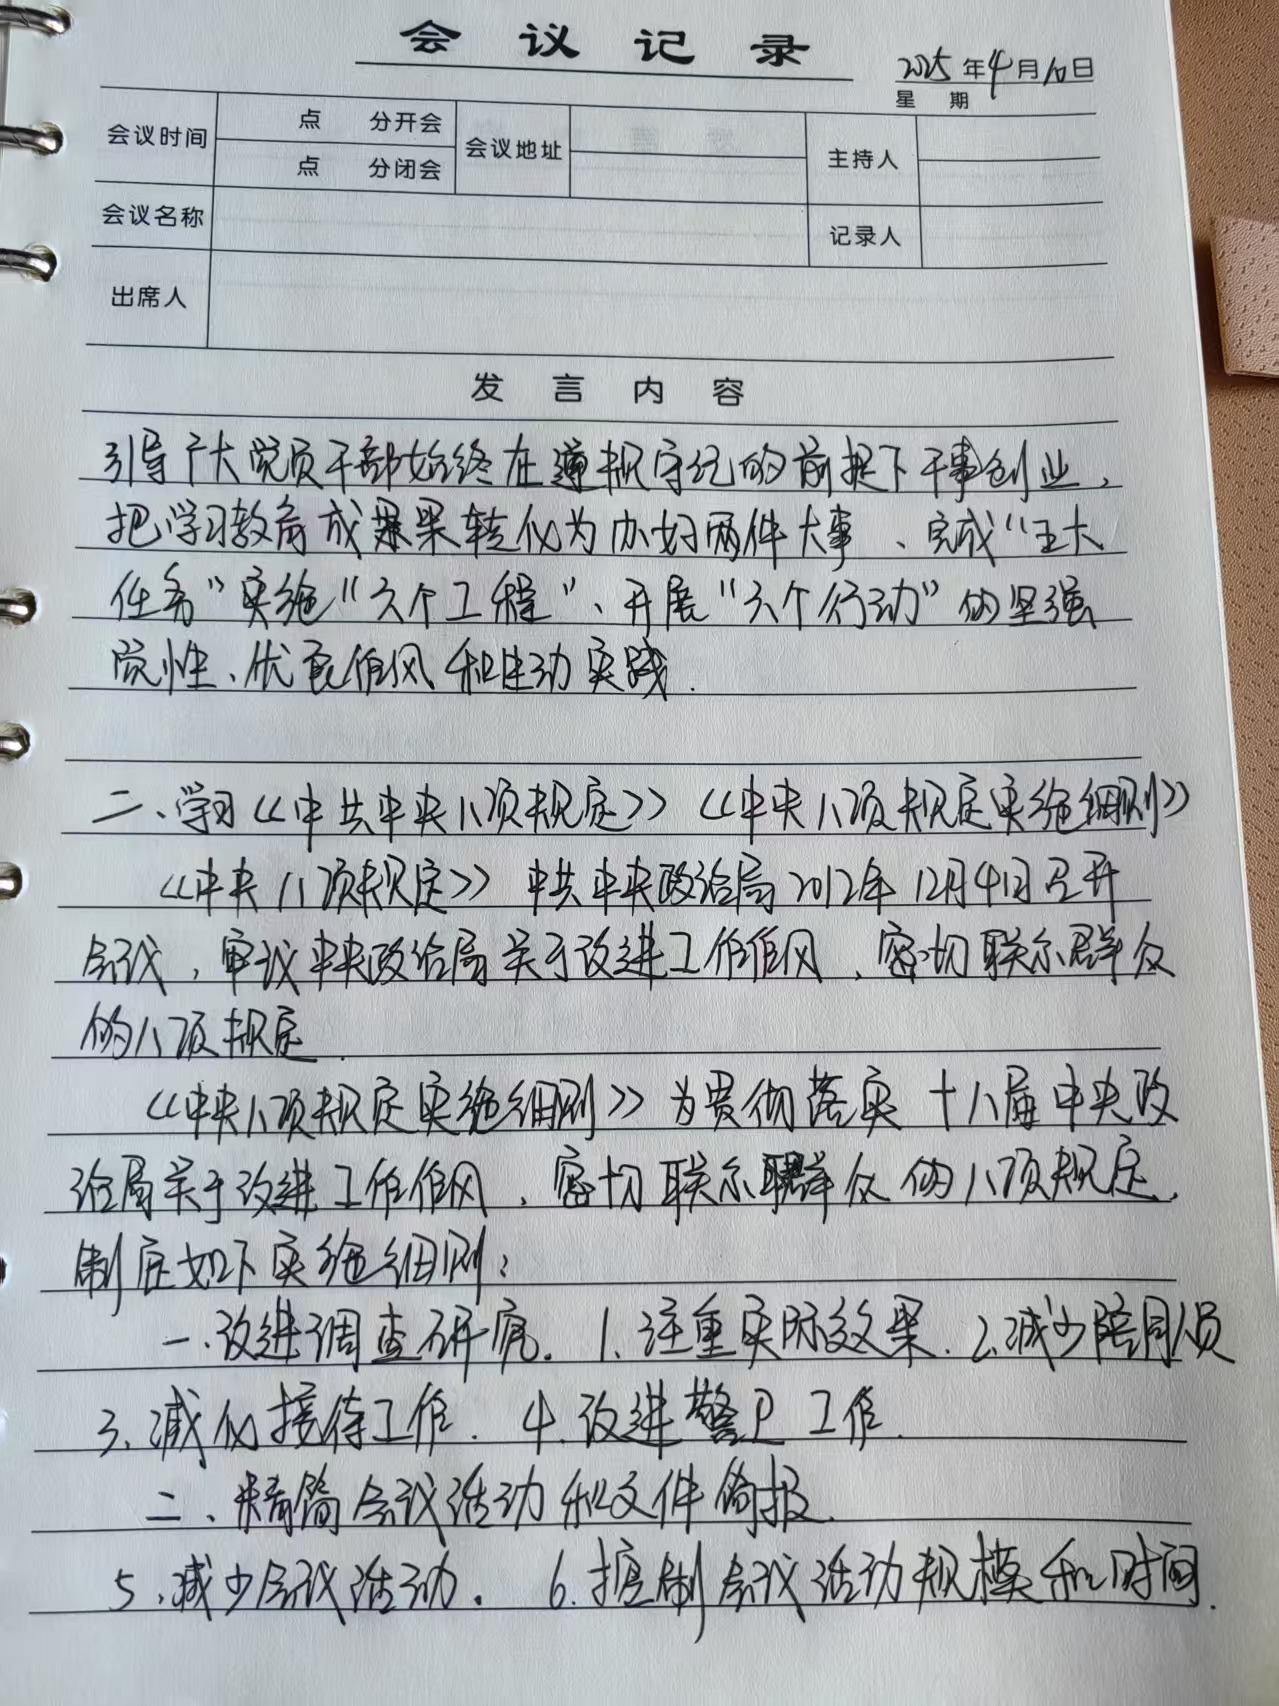 会议记录
2025年4月10日
星期
会议时间 点 分开会 会议地址 主持人
点 分闭会
会议名称 记录人
出席人
发言内容
引导广大党员干部始终在遵规守纪的前提下干事创业，
把学习教育成果转化为办好两件大事、完成“五大
任务”实施“六个工程”、开展“六个行动”的坚强
党性、优良作风和生动实践.
二、学习《中共中央八项规定》《中央八项规定实施细则》
《中央八项规定》中共中央政治局2012年12月4日召开
会议，审议中央政治局关于改进工作作风，密切联系群众
的八项规定.
《中央八项规定实施细则》为贯彻落实十八届中央政
治局关于改进工作作风，密切联系群众的八项规定，
制定如下实施细则：
一、改进调查研究. 1.注重实际效果. 2.减少陪同人员
3.减化接待工作. 4.改进警卫工作.
二、精简会议活动和文件简报.
5.减少会议活动. 6.控制会议活动规模和时间.